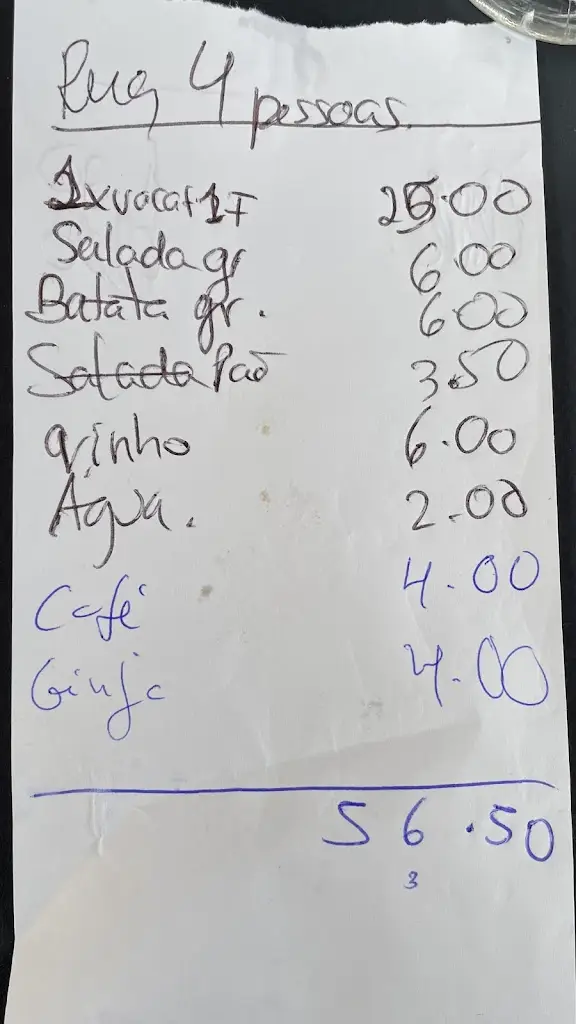 Rua 4 pessoas
25.00
Salada gr 6.00
Batata gr. 6.00
Salada Pão 3.50
Vinho 6.00
Água. 2.00
Café 4.00
Ginja 4.00
56.50
3